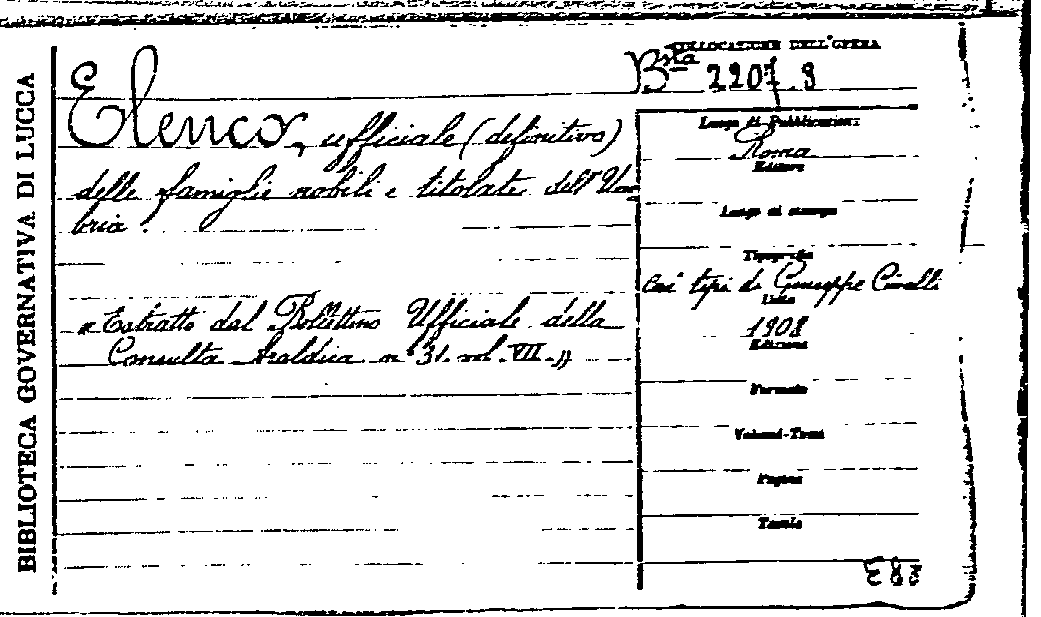 BIBLIOTECA GOVERNATIVA DI LUCCA
COLLOCAZIONE DELL'OPERA
B.ta 2207.8
Elenco, ufficiale (definitivo)
delle famiglie nobili e titolate dell'Um-
bria.
« Estratto dal Bollettino Ufficiale della
Consulta Araldica n° 31. vol. VII. »
Luogo di Pubblicazione
Roma
Editore
Luogo di stampa
Tipografia
Coi tipi di Giuseppe Civelli
Data
1908
Edizione
Formato
Volumi-Tomi
Pagine
Tavole